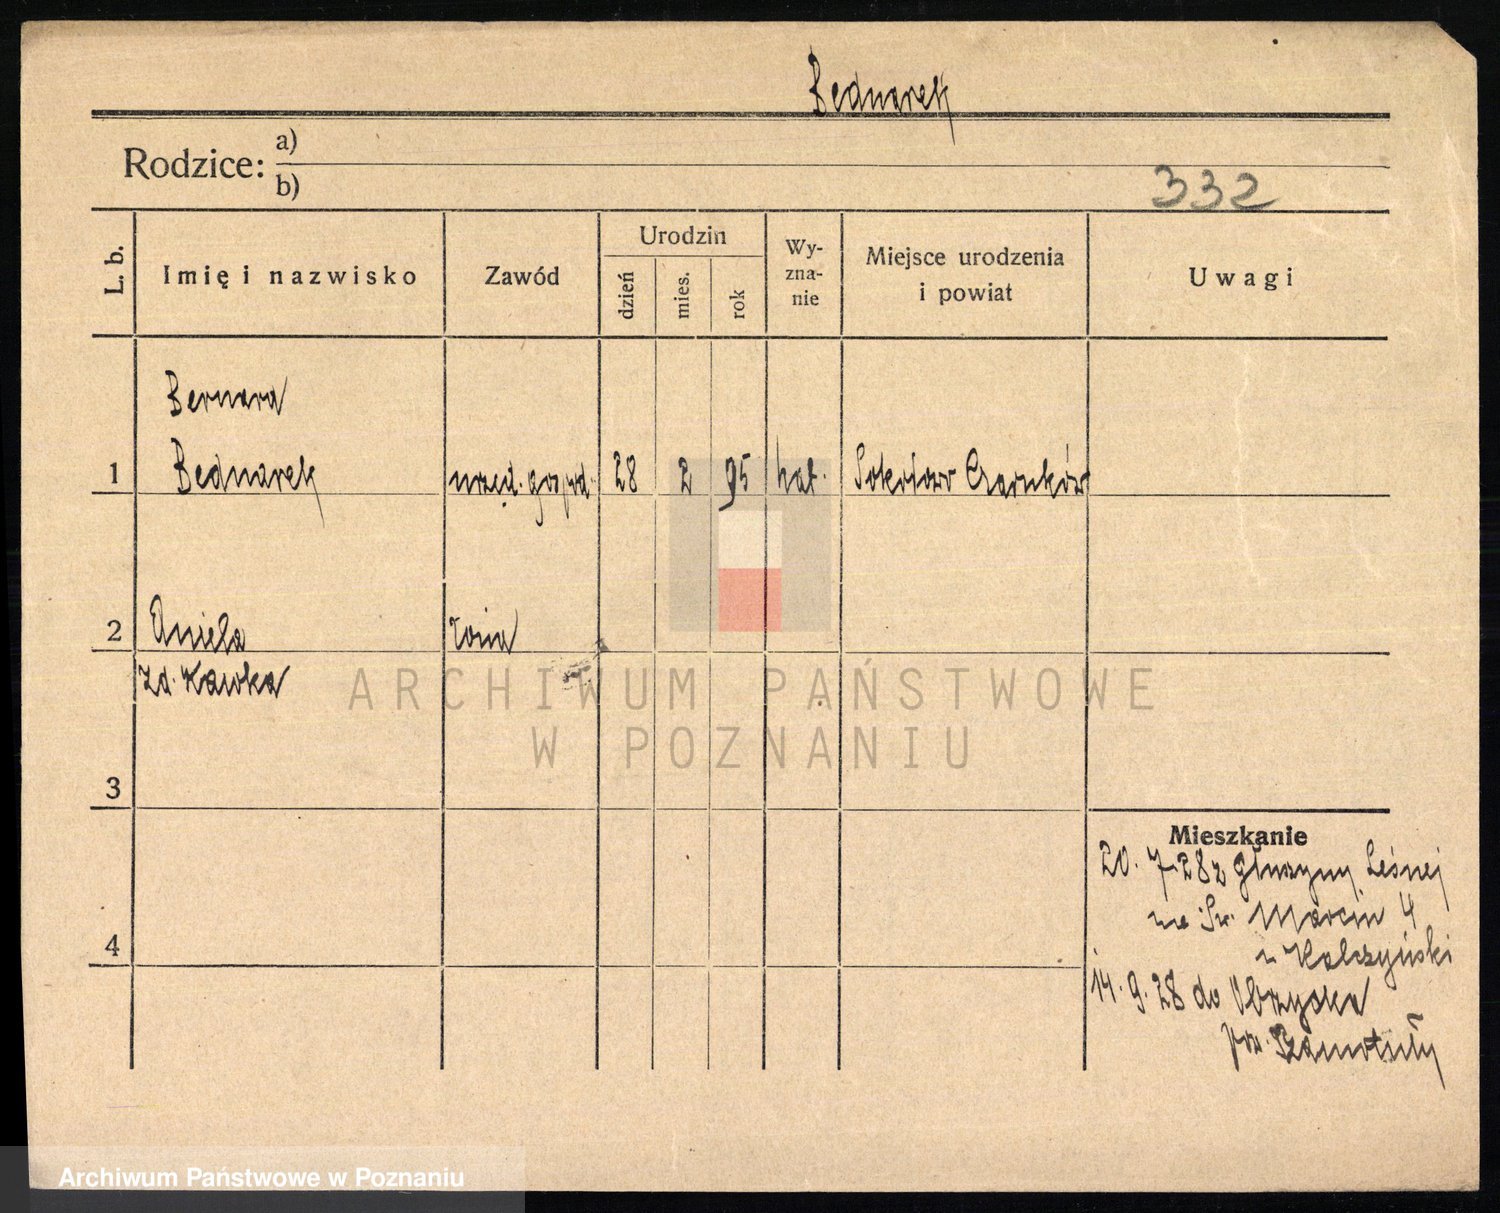 Bednarek
Rodzice: a)
b)
332
L. b.
Imię i nazwisko
Zawód
Urodzin
dzień
mies.
rok
Wy-
zna-
nie
Miejsce urodzenia
i powiat
Uwagi
Bernard
1 Bednarek urzęd. gospod. 28 2 95 kat. Sokołowo Czarnków
2 Aniela żona
zd. Kawka
3
4
Mieszkanie
20. 7. 28 z Głuszyny Leśnej
na Św. Marcin 4
u Kolczyński
14. 9. 28 do Obrzycka
pow. Szamotuły
ARCHIWUM PAŃSTWOWE
W POZNANIU
Archiwum Państwowe w Poznaniu